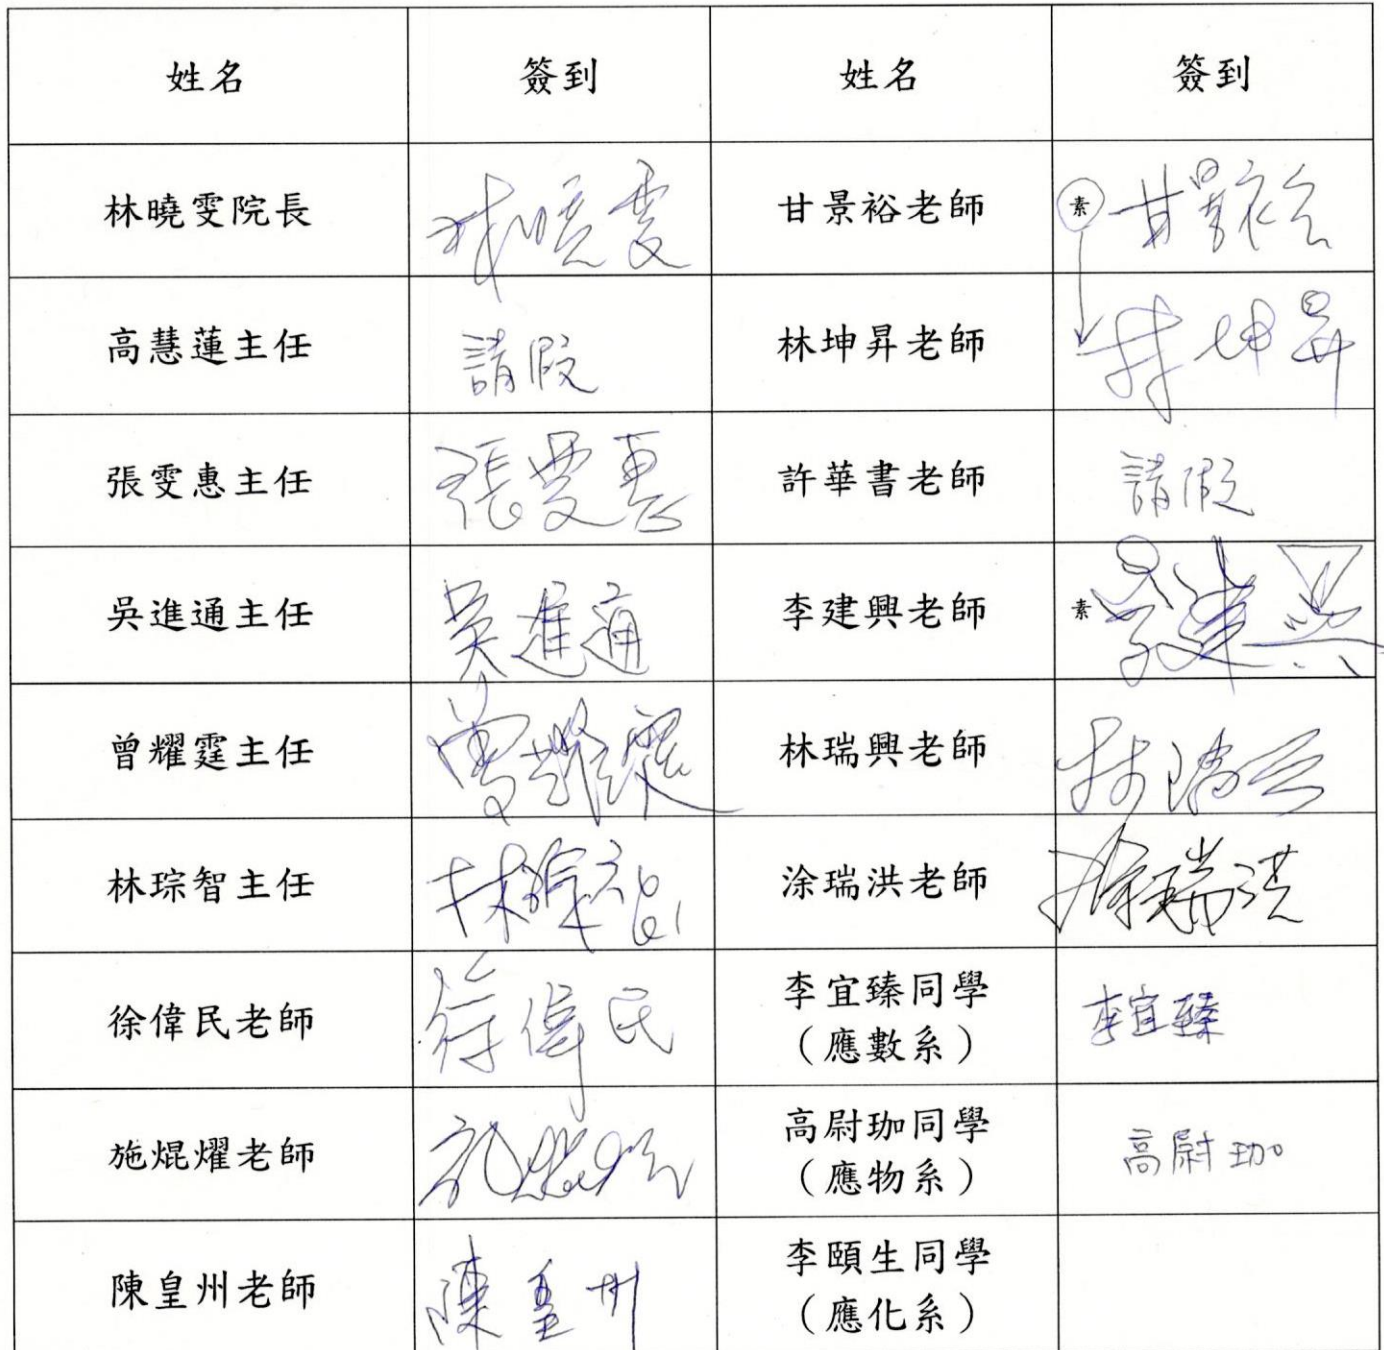 姓名 簽到 姓名 簽到
林曉雯院長 林曉雯 甘景裕老師 素 甘景裕
高慧蓮主任 請假 林坤昇老師 林坤昇
張雯惠主任 張雯惠 許華書老師 請假
吳進通主任 吳進通 李建興老師 素 李建興
曾耀霆主任 曾耀霆 林瑞興老師 林瑞興
林琮智主任 林琮智 涂瑞洪老師 涂瑞洪
徐偉民老師 徐偉民 李宜臻同學 李宜臻
（應數系）
施焜燿老師 施焜燿 高尉珈同學 高尉珈
（應物系）
陳皇州老師 陳皇州 李頤生同學
（應化系）